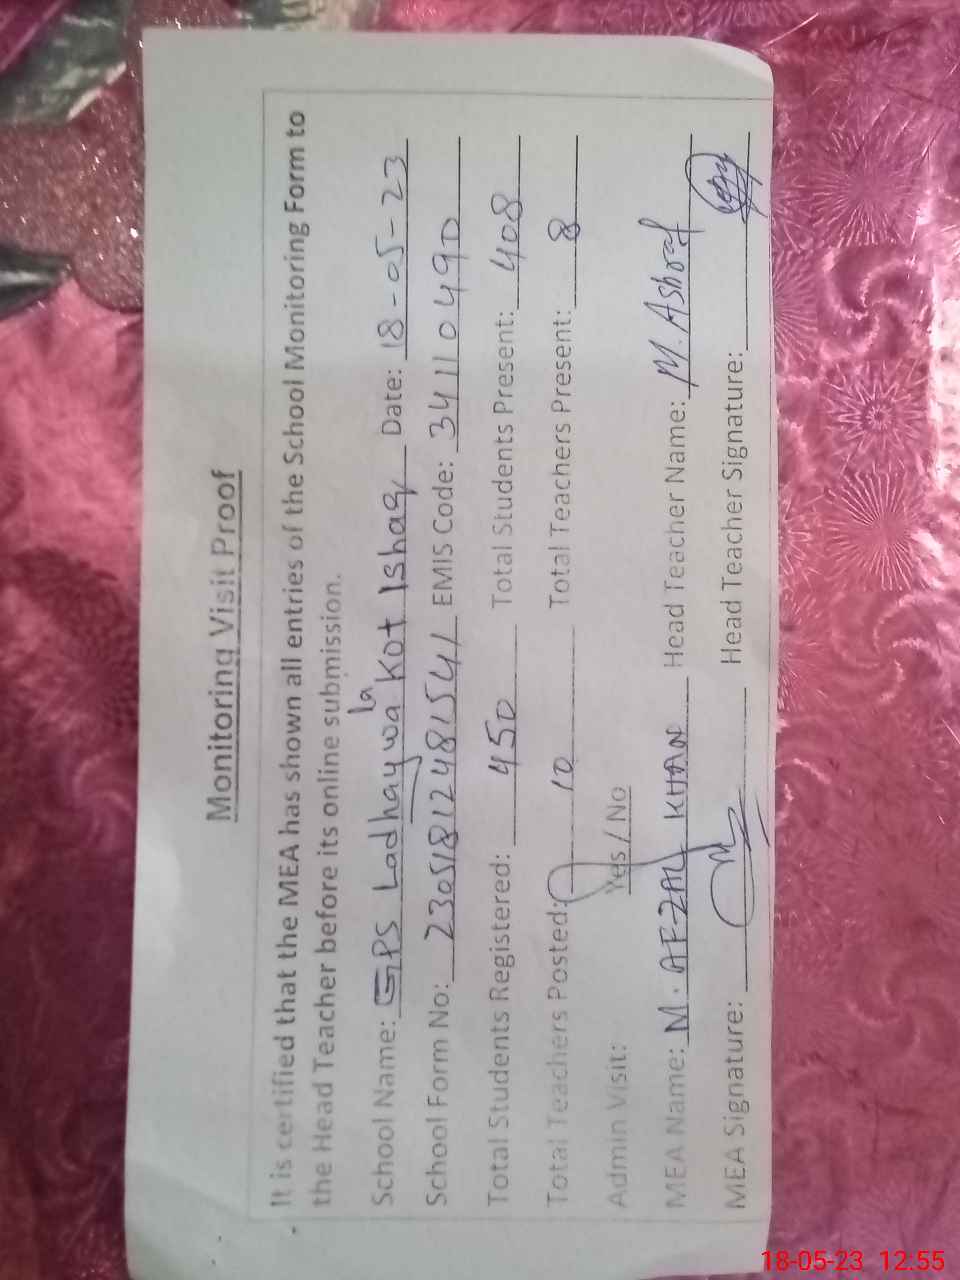 Monitoring Visit Proof
It is certified that the MEA has shown all entries of the School Monitoring Form to
the Head Teacher before its online submission.
School Name: GPS Ladhaywala Kot Ishaq Date: 18-05-23
School Form No: 2305181248154 EMIS Code: 34110490
Total Students Registered: 450 Total Students Present: 408
Total Teachers Posted: 10 Total Teachers Present: 8
Admin Visit: Yes / No
MEA Name: M. AFZAL KHAN Head Teacher Name: M. Ashraf
MEA Signature: Head Teacher Signature:
18-05-23 12:55